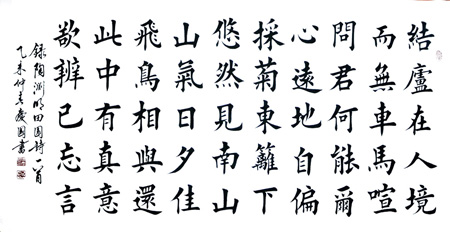 結廬在人境
而無車馬喧
問君何能爾
心遠地自偏
採菊東籬下
悠然見南山
山氣日夕佳
飛鳥相與還
此中有真意
欲辨已忘言
錄陶淵明田園詩一首
乙未仲慶國書